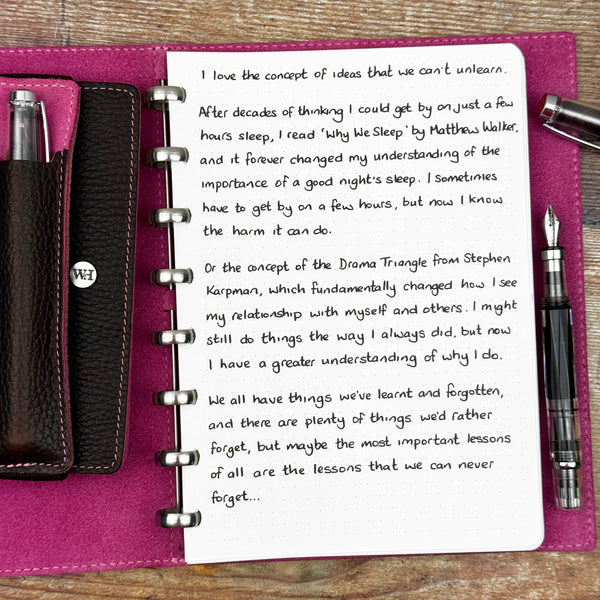 I love the concept of ideas that we can't unlearn.
After decades of thinking I could get by on just a few
hours sleep, I read 'Why We Sleep' by Matthew Walker,
and it forever changed my understanding of the
importance of a good night's sleep. I sometimes
have to get by on a few hours, but now I know
the harm it can do.
Or the concept of the Drama Triangle from Stephen
Karpman, which fundamentally changed how I see
my relationship with myself and others. I might
still do things the way I always did, but now
I have a greater understanding of why I do.
We all have things we've learnt and forgotten,
and there are plenty of things we'd rather
forget, but maybe the most important lessons
of all are the lessons that we can never
forget...
WH